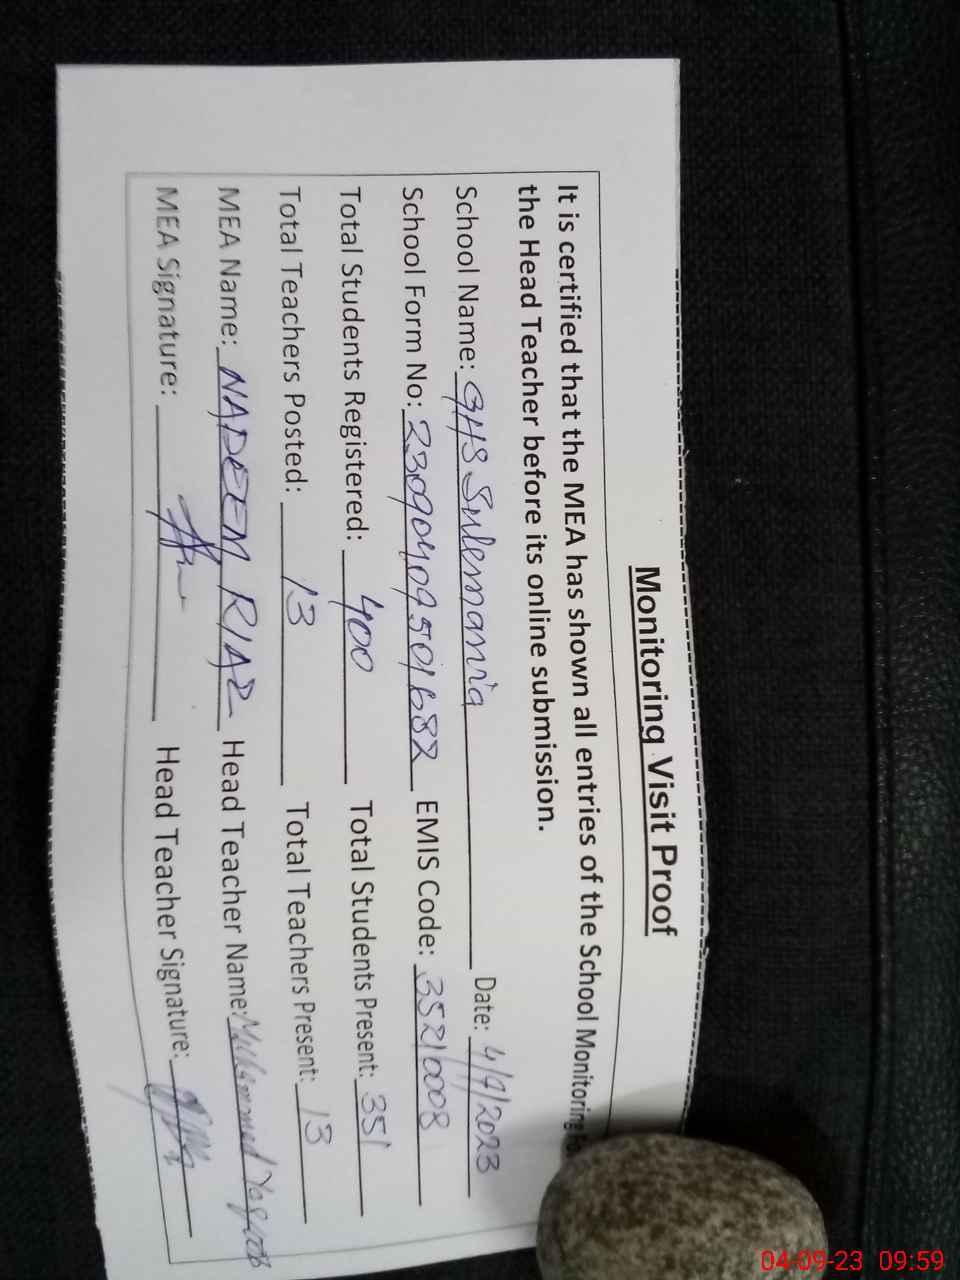 Monitoring Visit Proof
It is certified that the MEA has shown all entries of the School Monitoring
the Head Teacher before its online submission.
School Name: GHS Sulemania Date: 4/9/2023
School Form No: 23090409501682 EMIS Code: 35210008
Total Students Registered: 400 Total Students Present: 351
Total Teachers Posted: 13 Total Teachers Present: 13
MEA Name: NADEEM RIAZ Head Teacher Name: Muhammad Yaqoob
MEA Signature: Head Teacher Signature:
04-09-23 09:59